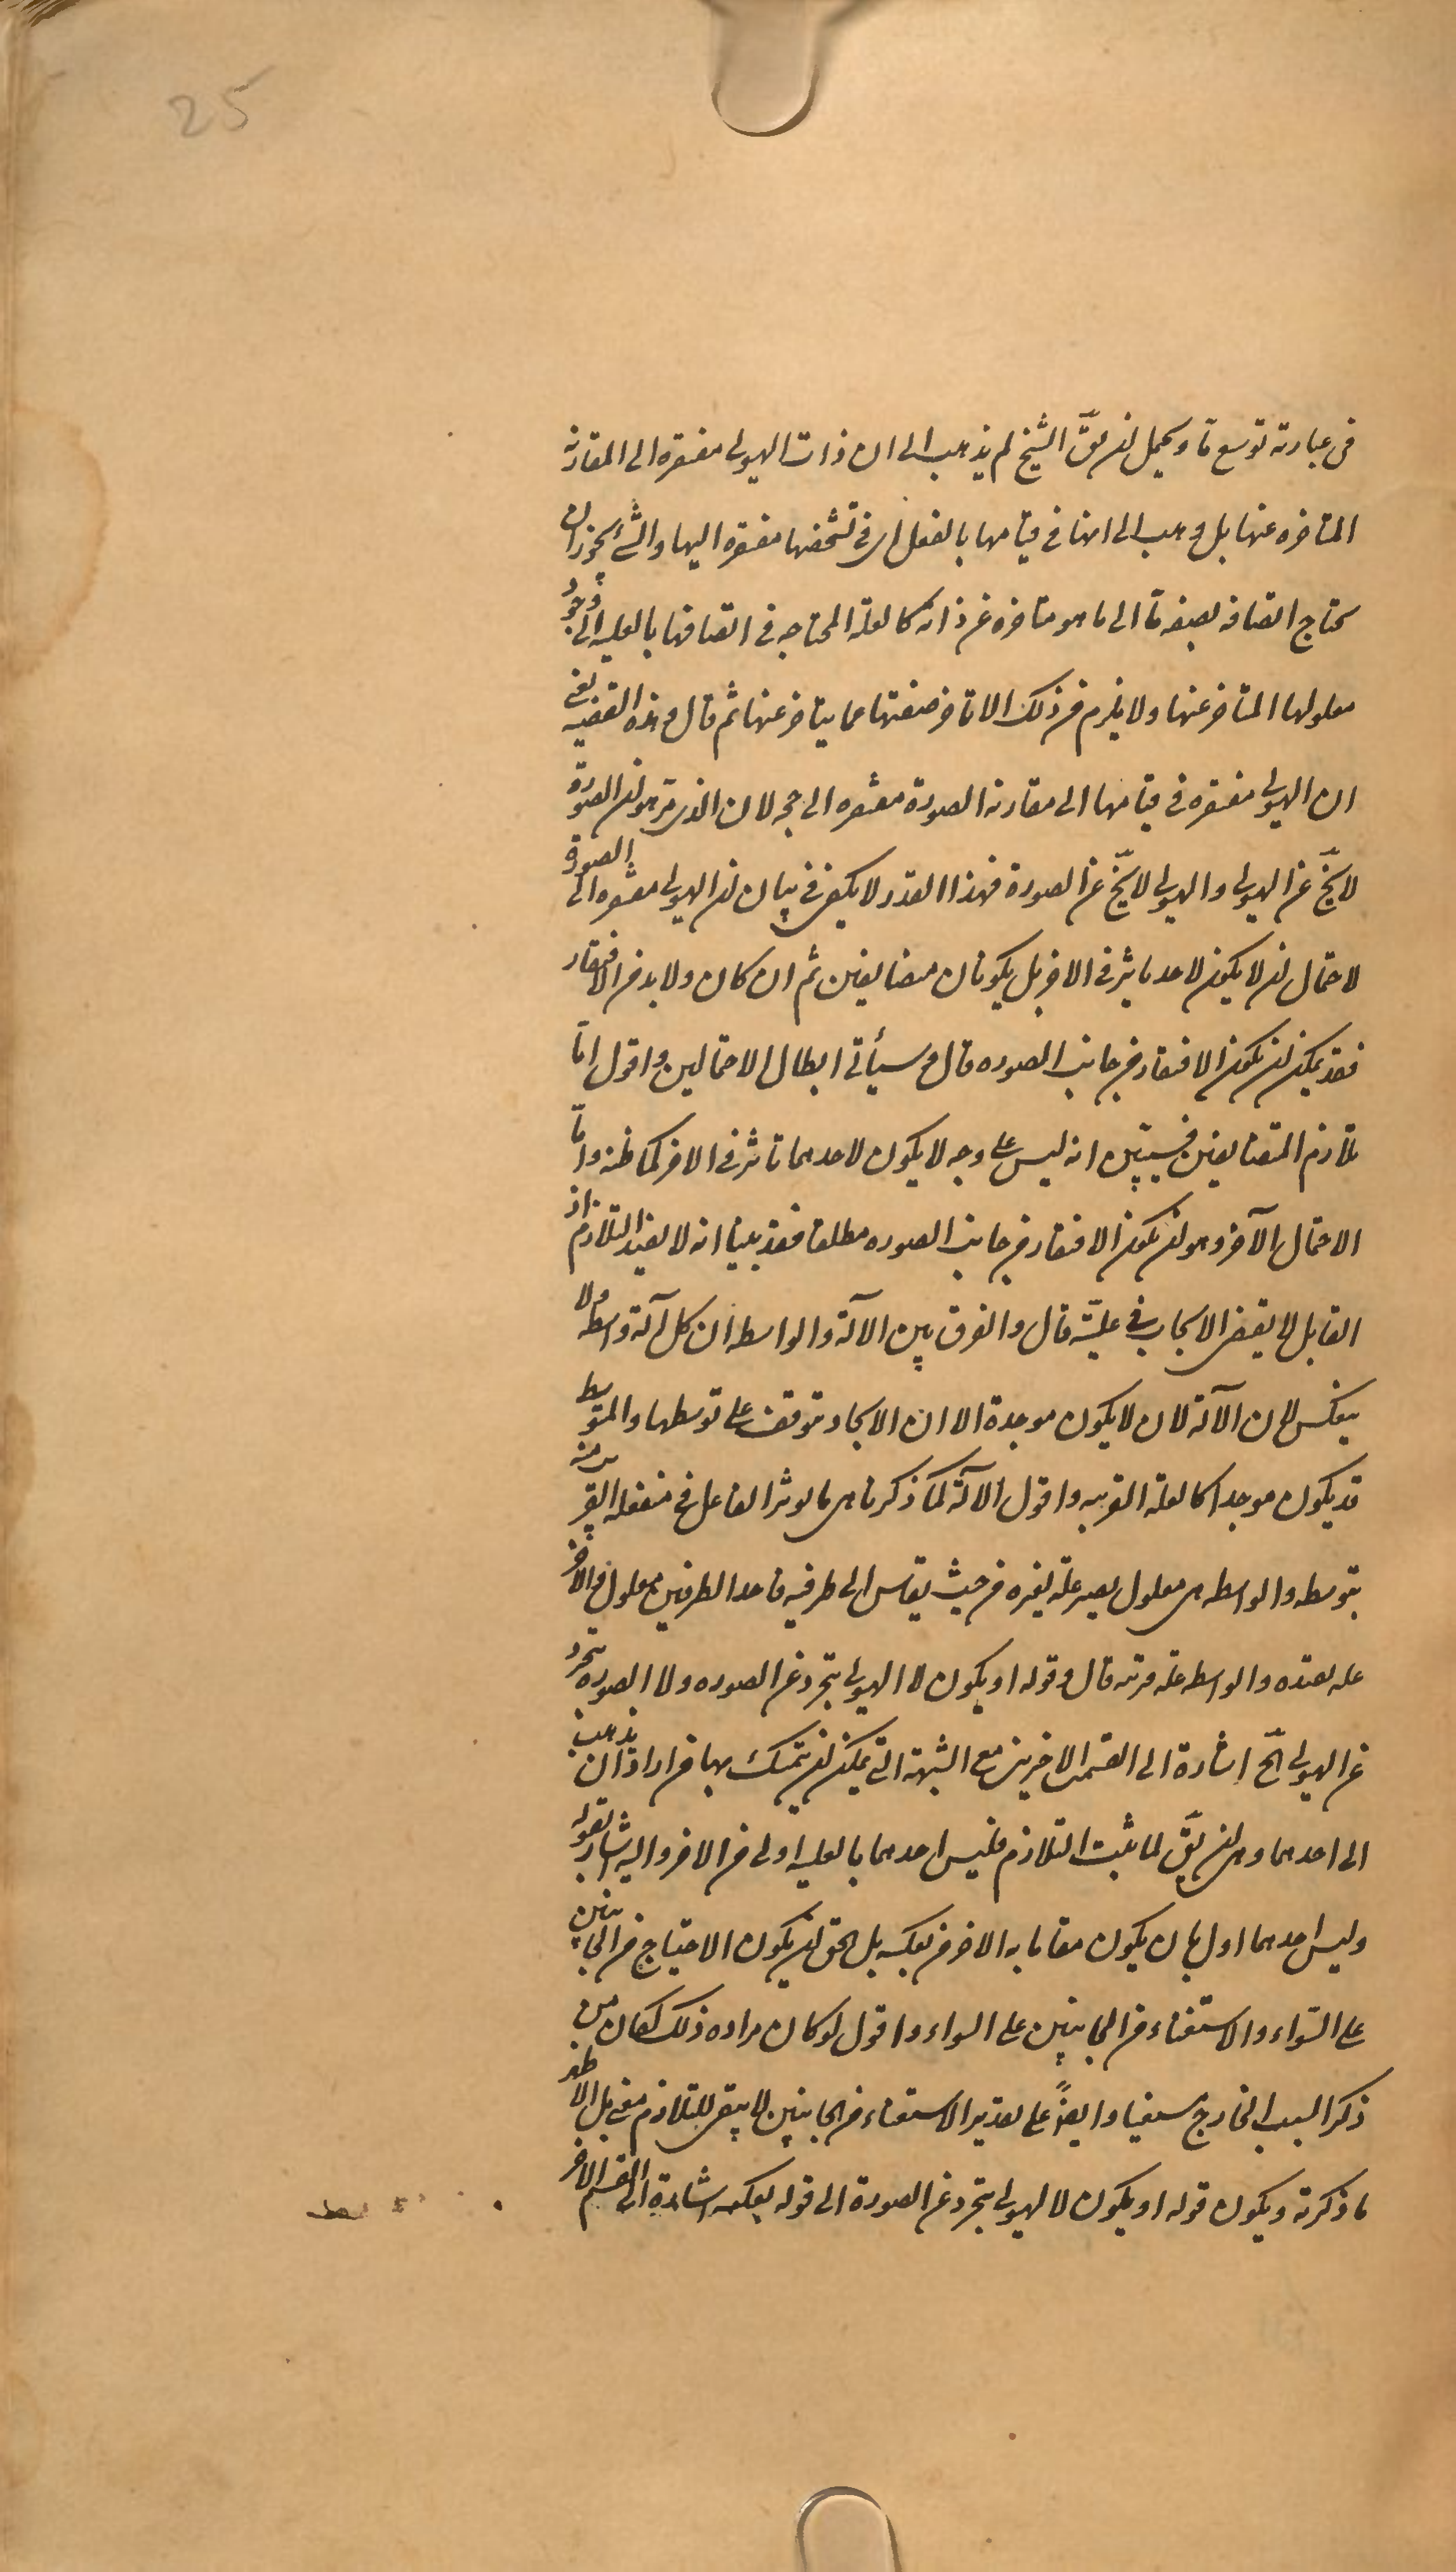 25
فى عبارته توسع ما ويحمل ان يقَ الشيخ لم يذهب الى ان ذات الهيولى مفتقره الى المقارنه
المتاخره عنها بل ذهب الى انها فى قيامها بالفعل اى فى تشخصها مفتقره اليها والشى يجوز ان
يحتاج اتصافه بصفه ما الى ما هو متاخره عن ذاته كالعله المحتاجه فى اتصافها بالعليه الى وجود
معلولها المتاخر عنها ولا يلزم من ذلك الا تاخر صفتها عما يتاخر عنها ثم قال وهذه القضيه يعنى
ان الهيولى مفتقره فى قيامها الى مقارنه الصورة مفتقره الى حجه لان الذى مرّ هو ان الصورة
لا يخّ عن الهيولى والهيولى لا يخّ عن الصورة فهذا القدر لا يكفى فى بيان ان الهيولى مفتقره الى الصورة
لاحتمال ان لا يكون لاحد تاثير فى الاخر بل يكونان متضايفين ثم ان كان ولا بد من الافتقار
فقد يمكن ان يكون الافتقار من جانب الصوره قال وسيأتى ابطال الاحتمالين واقول امّا
تلازم المتضايفين فسيتبين انه ليس على وجه لا يكون لاحدهما تاثير فى الاخر كما ظنه وامّا
الاحتمال الآخر وهو ان يكون الافتقار من جانب الصوره مطلقا فقد بينا انه لا يفيد التلازم اذ
القابل لا يقتضى الايجاب فى عليّته قال والفرق بين الآلة والواسطه ان كل آلة واسطه ولا
ينعكس لان الآلة لان لا يكون موجدة الا ان الايجاد متوقف على توسطها والمتوسط
قد يكون موجدا كالعلة القريبه واقول الآلة كما ذكرنا هى ما يوثر الفاعل فى منفعله القريب منه
بتوسطه والواسطه هى معلول يصير علة لغيره من حيث يقاس الى طرفيه فاحد الطرفين معلول والاخر
عله بعيده والواسطه علة قريبه قال وقوله او يكون لا الهيولى يتجرد عن الصوره ولا الصوره يتجرد
عن الهيولى الخّ اشارة الى القسمين الاخرين مع الشبهة التى يمكن ان يتمسك بها من اراد ان يذهب
الى احدهما وهى ان يقَ لما ثبت التلازم فليس احدهما بالعليه اولى من الاخر واليه اشار بقوله
وليس احدهما اولى بان يكون مقاما به الاخر من بعكسه بل الحق ان يكون الاحتياج من الجانبين
على السّواء والاستغناء من الجانبين على السواء واقول لو كان مراده ذلك لكان من
ذكر السبب الخارج مستغنيا وايضاً على تقدير الاستغناء من الجانبين لا يبقى للتلازم معنى بل الاظهر
ما ذكرته ويكون قوله او يكون لا الهيولى يتجرد عن الصورة الى قوله بعكسه اشارة الى القسم الاخر